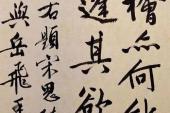 檜亦何能
逢其欲
右題宋思陵
與岳飛手